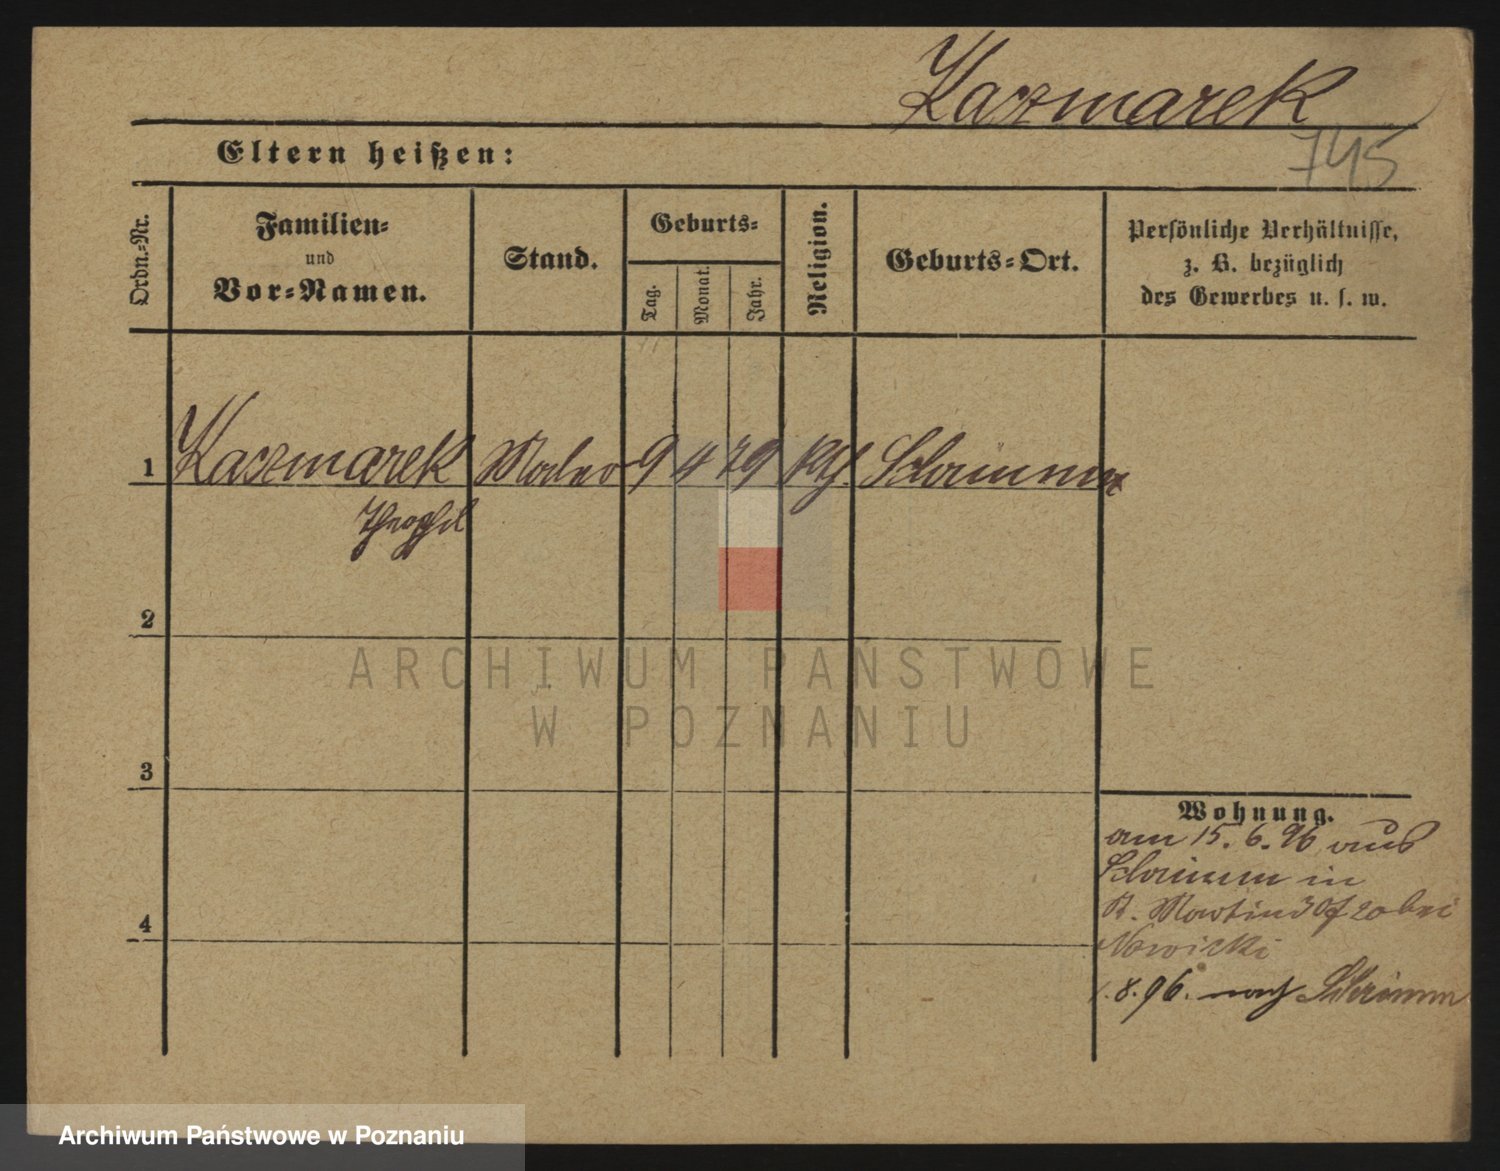 Kaczmarek
745
Eltern heißen:
Ordn.-Nr.
Familien-
und
Vor-Namen.
Stand.
Geburts-
Tag.
Monat.
Jahr.
Religion.
Geburts-Ort.
Persönliche Verhältnisse,
z. B. bezüglich
des Gewerbes u. s. w.
1 Kaczmarek Maler 9 4 79 kth. Schrimm
Theophil
2
ARCHIWUM PAŃSTWOWE
W POZNANIU
3
Wohnung.
am 15. 6. 96 aus
Schrimm in
St. Martin 20 bei
4
Nowicki
1. 8. 96. nach Schrimm
Archiwum Państwowe w Poznaniu